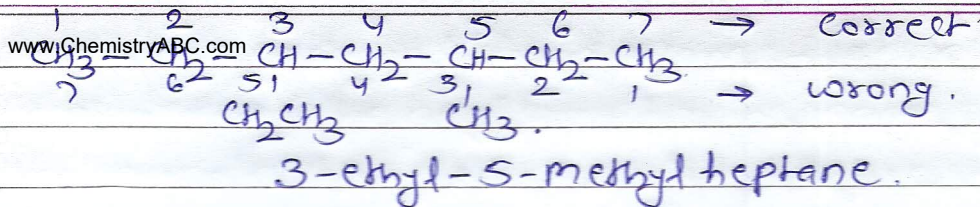 1 2 3 4 5 6 7 → correct
www.ChemistryABC.com
CH3 - CH2 - CH - CH2 - CH - CH2 - CH3
7 6 5 4 3 2 1 → wrong.
CH2CH3 CH3.
3-ethyl-5-methyl heptane.